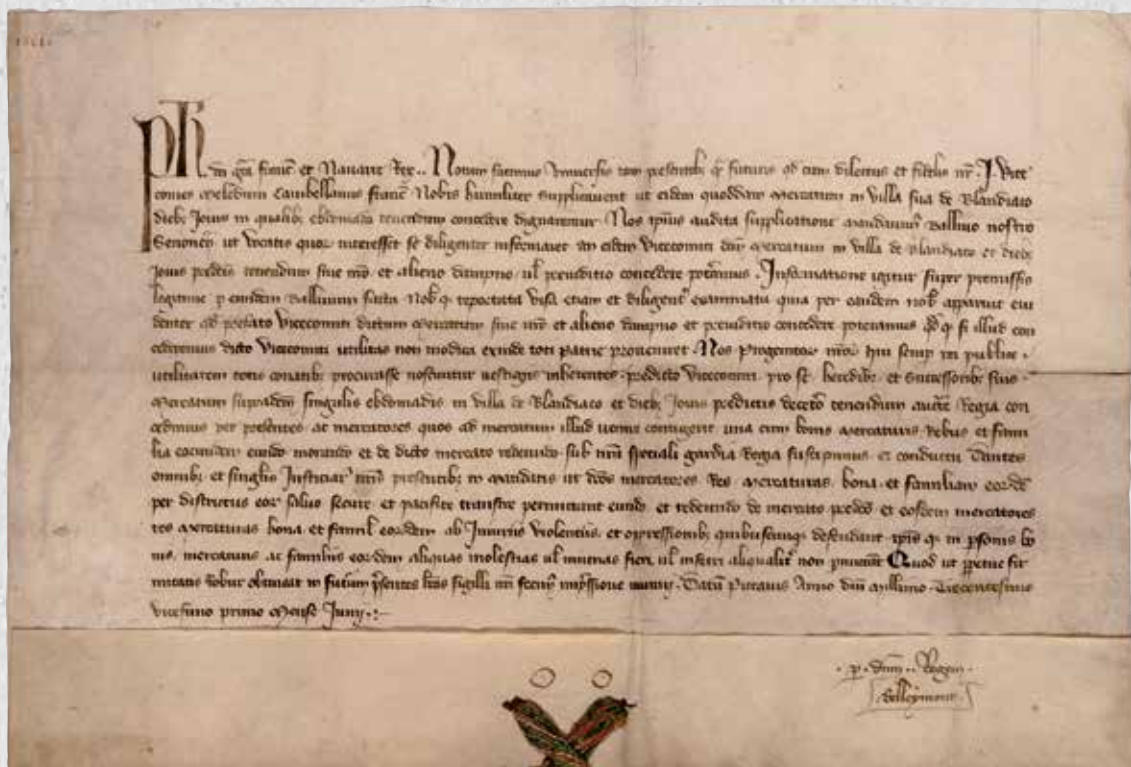 Ph
dei gra Franc et Navarre Rex .. Notum facimus Universis tam presentib; qm futuris qd cum dilectus et fidelis nr J Vice
comes Meledum Cambellanus Franc Nobis humiliter supplicaverit ut eidem quoddam Mercatum in villa sua de Blandiaco
dieb; Jovis in qualib; ebdomada tenendum concedere dignaremur Nos ipius audita supplicatione mandavim Ballivo nostro
Senonen ut vocatis quor interesset se diligenter informaret an eidem vicecomiti dcm Mercatum in villa de Blandiaco et dieb;
Jovis predcis tenendum sine nro et alieno dampno ul preiudicio concedere poteramus . Informatione igitur super premissis
legitime p eundem Ballivum facta Nob q reportata visa etiam et diligent examinata quia per eandem nob apparuit evi
denter qd prefato vicecomiti dictum Mercatum sine nro et alieno dampno et preiudicio concedere poteramus qd q si illud con
cederemus dicto vicecomiti utilitas non modica exinde toti patrie proveniret . Nos Progenitor nror qui semp rei publice
utilitatem totis conatib; procurasse noscuntur vestigiis inherentes predicto vicecomiti pro se heredib; et successorib; suis
Mercatum supradcm singulis ebdomadis in villa de Blandiaco et dieb; Jovis predictis deceto tenendum aucte Regia con
cedimus per presentes ac mercatores quos ad mercatum illud venire contigerit una cum bonis Mercaturis Rebus et fami
lia eorumdem eundo morando et de dicto mercato redeundo sub nra speciali gardia Regia suscipimus et conductu Dantes
omnib; et singlis Justiciar nris presentib; in mandatis ut dcos mercatores Res Mercaturas bona et familiam eorde
per districtus eor salvo secure et pacifice transire permittant eundo et redeundo de mercato predco et eosdem mercatores
res Mercaturas bona et famil eordem ab Injuriis violentiis et oppressionib; quibuscunq; defendant ipis q in psonis bo
nis mercaturis ac familiis eordem aliquas molestias ul iniurias fieri ul inferri aliqualit non pmittant Quod ut ppetue fir
mitatis Robur obtineat in futurum psentes lras sigilli nri fecim impssione muniri . Datum Pictavis Anno dni Millimo Trecentesimo
vicesimo primo Mense Junij .
p . dnm . Regem
Belleymont